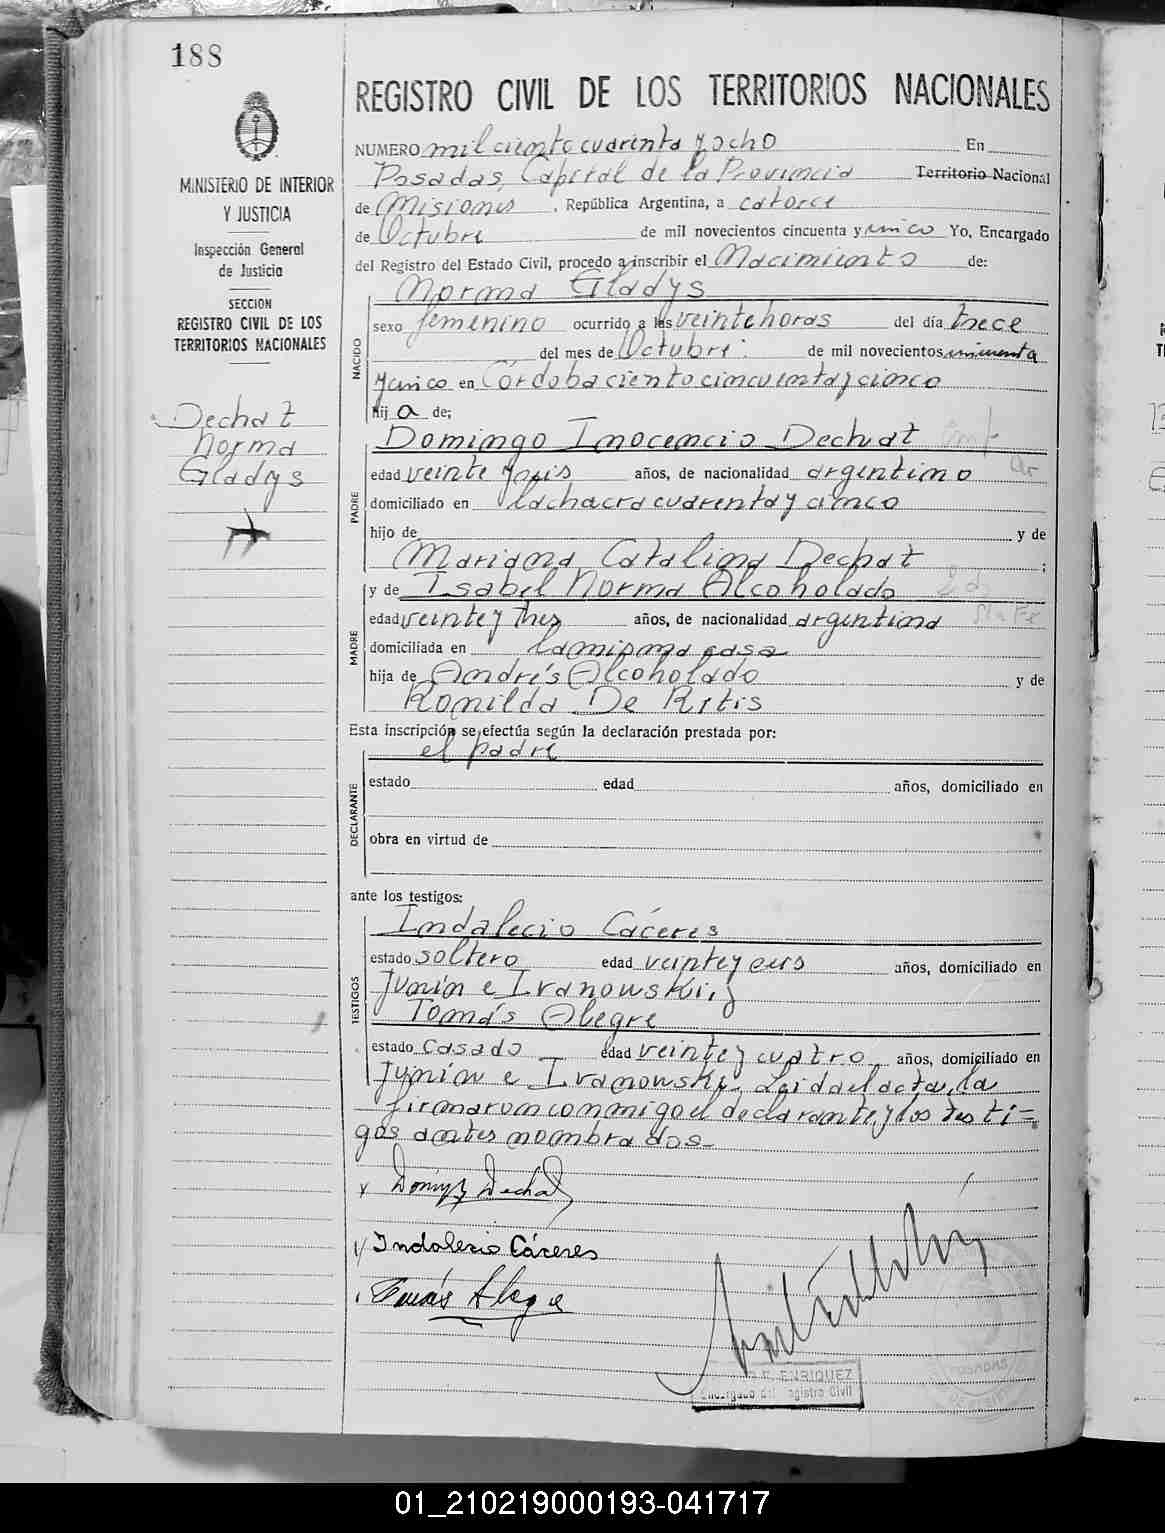 188
REGISTRO CIVIL DE LOS TERRITORIOS NACIONALES
MINISTERIO DE INTERIOR
Y JUSTICIA
Inspección General
de Justicia
SECCION
REGISTRO CIVIL DE LOS
TERRITORIOS NACIONALES
Dechat
Norma
Gladys
NUMERO mil ciento cuarenta y ocho En
Posadas, Capital de la Provincia Territorio Nacional
de Misiones , República Argentina, a catorce
de Octubre de mil novecientos cincuenta y cinco Yo, Encargado
del Registro del Estado Civil, procedo a inscribir el Nacimiento de:
Norma Gladys
NACIDO
sexo femenino ocurrido a las veinte horas del día trece
del mes de Octubre de mil novecientos cincuenta
y cinco en Córdoba ciento cincuenta y cinco
hij a de;
Domingo Inocencio Dechat
PADRE
edad veinte y años, de nacionalidad argentino
domiciliado en la chacra cuarenta y cinco
hijo de y de
Mariana Catalina Dechat ;
y de Isabel Norma Alcoholado
MADRE
edad veinte y tres años, de nacionalidad argentina
domiciliada en la misma casa
hija de Andrés Alcoholado y de
Romilda De Ritis
Esta inscripción se efectúa según la declaración prestada por:
el padre
DECLARANTE
estado edad años, domiciliado en
obra en virtud de
ante los testigos:
Indalecio Cáceres
TESTIGOS
estado soltero edad veinte y años, domiciliado en
Junin e Ivanowski, y
Tomás Alegre
estado casado edad veinte y cuatro años, domiciliado en
Junin e Ivanowski. Leida el acta, la
firmaron conmigo el declarante y los testi=
gos antes nombrados-
Doming Dechat
Indalecio Cáceres
Tomás Alegre
E. ENRIQUEZ
Encargado del Registro Civil
POSADAS
01_210219000193-041717